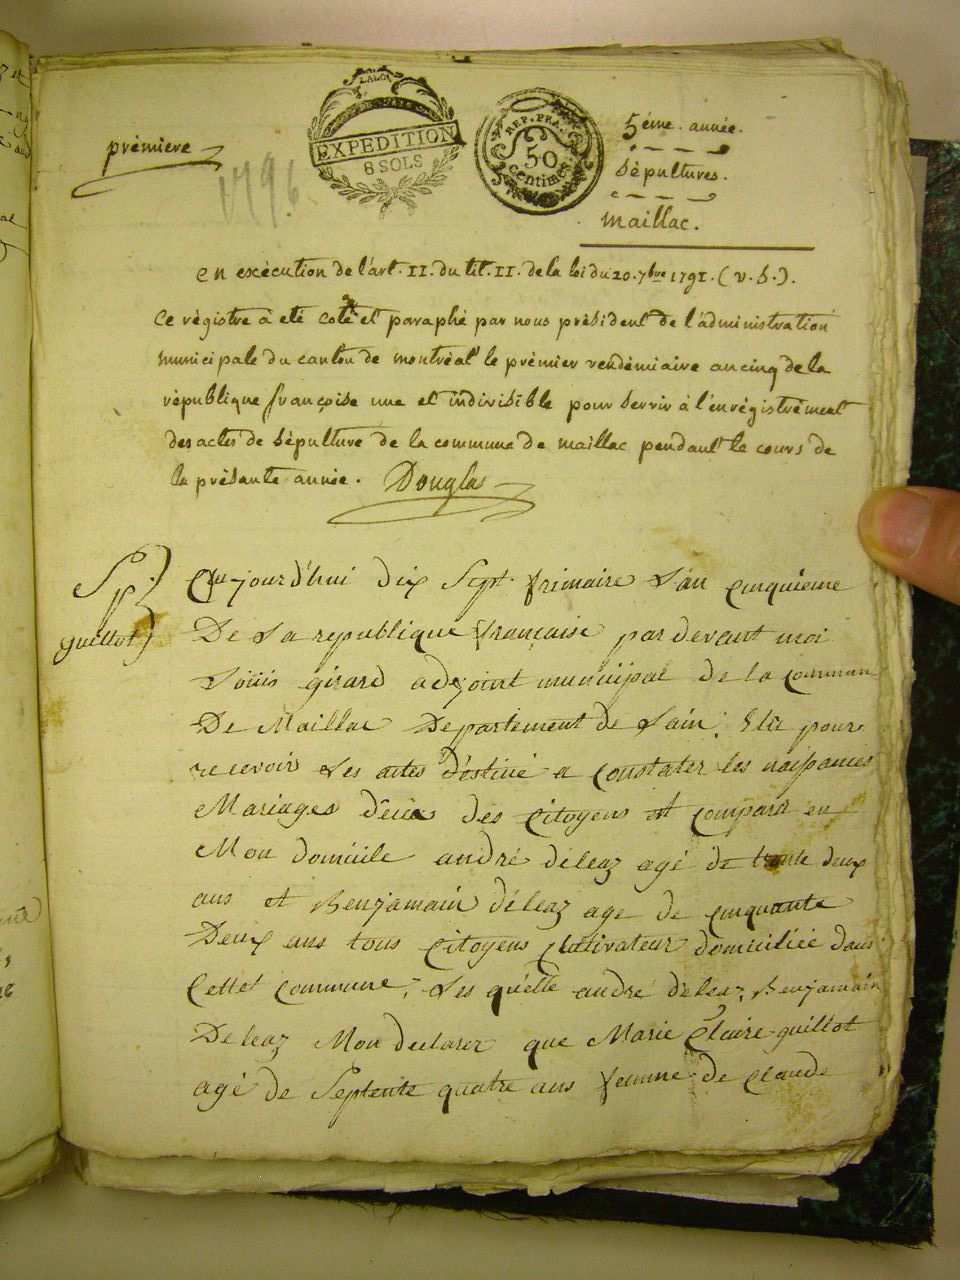 première
1796
LALOI
EXPEDITION
6 SOLS
REP. FRA.
50
centimes
5éme. année.
sépultures.
Maillac.
en exécution de l'art. II. du tit. II. de la loi du 20. 7bre 1791. (v. s.).
Ce régistre à été coté et paraphé par nous président de l'administration
municipale du canton de montréal le prémier vendémiaire an cinq de la
république françoise une et indivisible pour servir à l'enrégistrément
des actes de sépulture de la commune de maillac pendant le cours de
la présante année. Douglas
Sp.
guillot
Aujourd'hui dix Sept. frimaire L'an Cinquieme
De La republique française par devant moi
Loüis girard adejoint municipal de la commune
De Maillac Departement de Lain. Elu pour
recevoir Les actes Destiné a Constater les naissances
Mariages décès des Citoyens et Compara en
Mon domicile andré déleaz agé de trente deux
ans et Benjamain déleaz age de Cinquante
Deux ans tous Citoyens Cultivateur domiciliée dans
Cettet commune, Les quélle andré déleaz, Benjamain
Deleaz Mon declarer que Marie Claire guillot
agé de Septente quatre ans femme de Claude